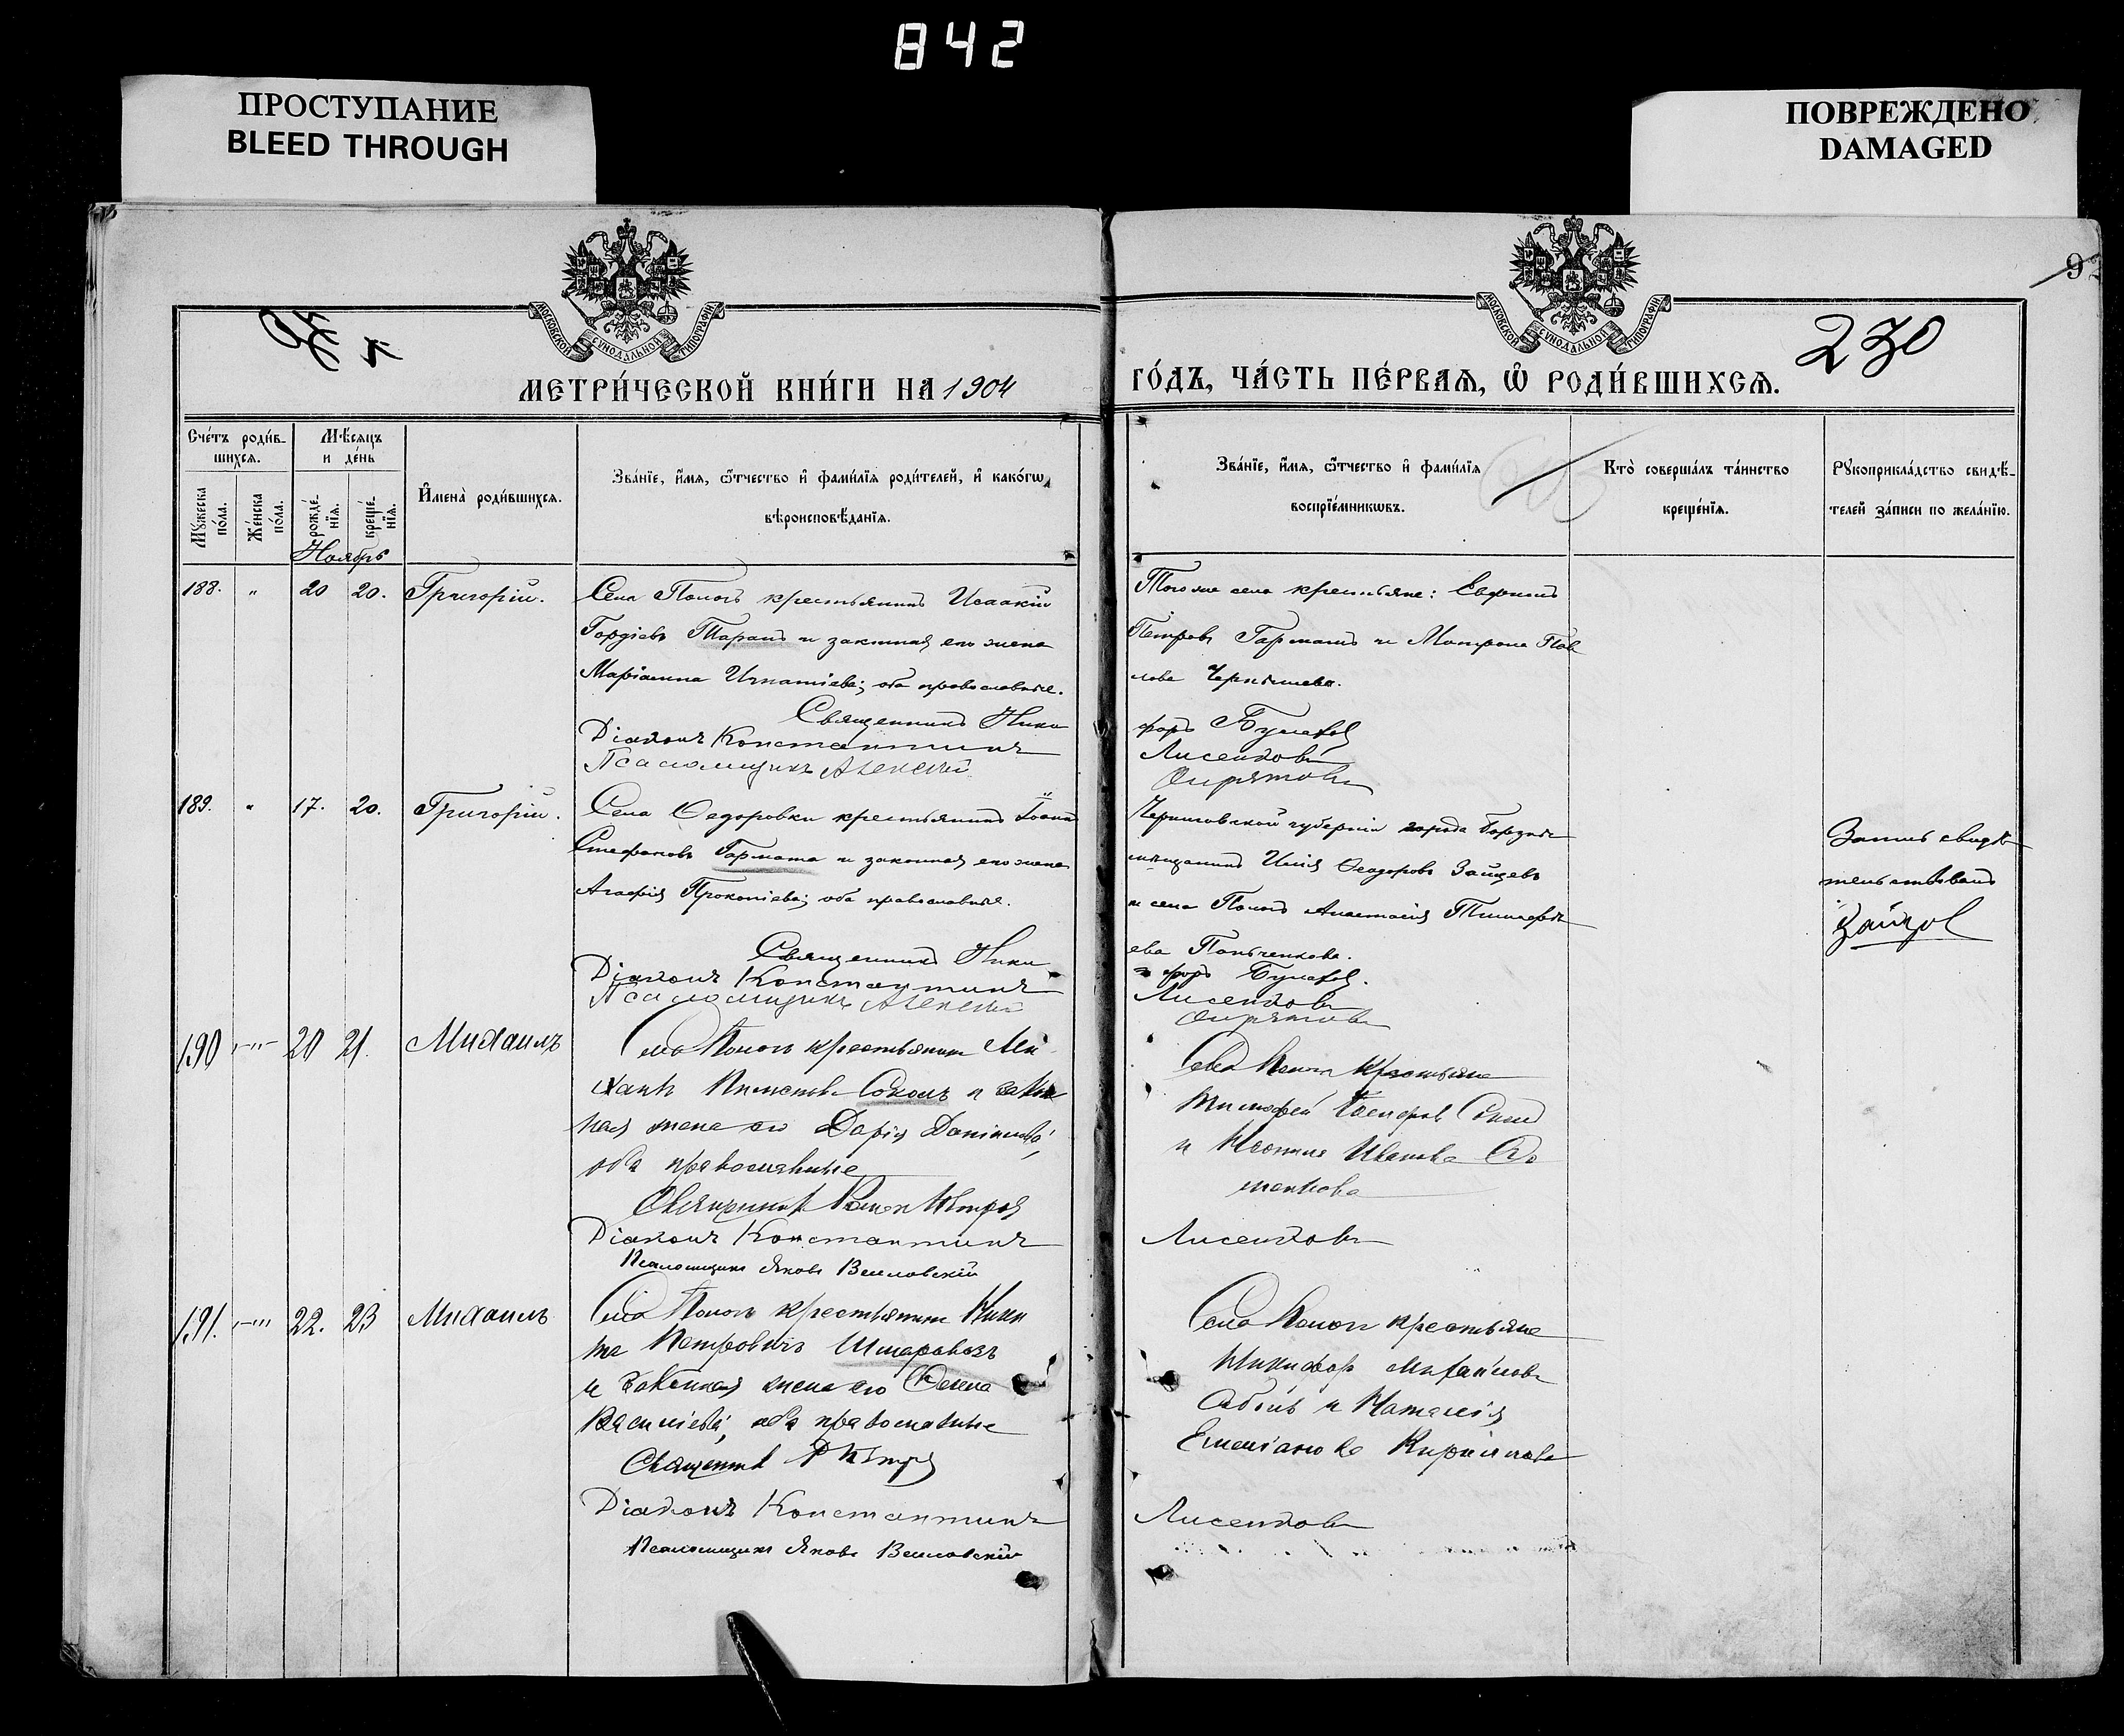 842
ПРОСТУПАНИЕ
BLEED THROUGH
ПОВРЕЖДЕНО
DAMAGED
9
МОСКОВСКОЙ СѴНОДАЛЬНОЙ ТИПОГРАФІИ
МОСКОВСКОЙ СѴНОДАЛЬНОЙ ТИПОГРАФІИ
230
МЕТРИ́ЧЕСКОЙ КНИ́ГИ НА 1904
ГО́ДЪ, ЧА́СТЬ ПЕ́РВАЯ, Ѡ҆ РОДИ́ВШИХСЯ.
Сче́тъ роди́в-
шихся.
Мѣ́сяцъ
и де́нь
Мꙋ́жеска по́ла.
Же́нска по́ла.
рожде́-нїя.
креще́-нїя.
И҆мена̀ роди́вшихся.
Зва́нїе, и҆́мя, ѻ҆́тчество и҆ фами́лїя роди́телей, и҆ како́гѡ
вѣроисповѣ́данїя.
Зва́нїе, и҆́мя, ѻ҆́тчество и҆ фами́лїя
воспрїе́мникѡвъ.
Кто̀ соверша́лъ та́инство
креще́нїя.
Рꙋкоприкла́дство свидѣ́-
телей за́писи по жела́нїю.
Ноябрь
188. " 20 20. Григорій.
Села Пологъ крестьянинъ Исаакій
Гордіевъ Таранъ и законная его жена
Маріамна Игнатіева; оба православные.
Священникъ Ники
Діаконъ Константинъ
Псаломщикъ Алексей
Того же села крестьяне: Евфимъ
Петровъ Гармашъ и Матрона Пав
лова Чернышева.
форъ
Лисенковъ
189. " 17. 20. Григорій.
Села Федоровки крестьянинъ Іоаннъ
Стефановъ Гармаша и законная его жена
Агафія Прокопіева; оба православные.
Священникъ Ники
Діаконъ Константинъ
Псаломщикъ Алексей
Черниговской губерніи города Борзны
мѣщанинъ Илія Феодоровъ Зайцевъ
и села Пологъ Анастасія Тимофе
ева
форъ
Лисенковъ
Запись свидѣ
тельствовалъ
Зайцов
190 -"- 20 21. Михаилъ
Села Пологъ крестьянинъ Ми
хаилъ Соколъ и закон
ная жена его Дарія
оба православные
Священникъ Петров
Діаконъ Константинъ
Псаломщикъ Яковъ
Села Пологъ крестьяне
Тимофей
и Иванова
Лисенковъ
191. -"- 22. 23 Михаилъ
Села Пологъ крестьянинъ Ники
та Петровичъ Шаровозъ
и законная жена его Елена
Василіева, оба православные
Священникъ
Діаконъ Константинъ
Псаломщикъ Яковъ
Села Пологъ крестьяне
Никифор Михайловъ
и Наталія
Емеліанова Кирилова
Лисенковъ